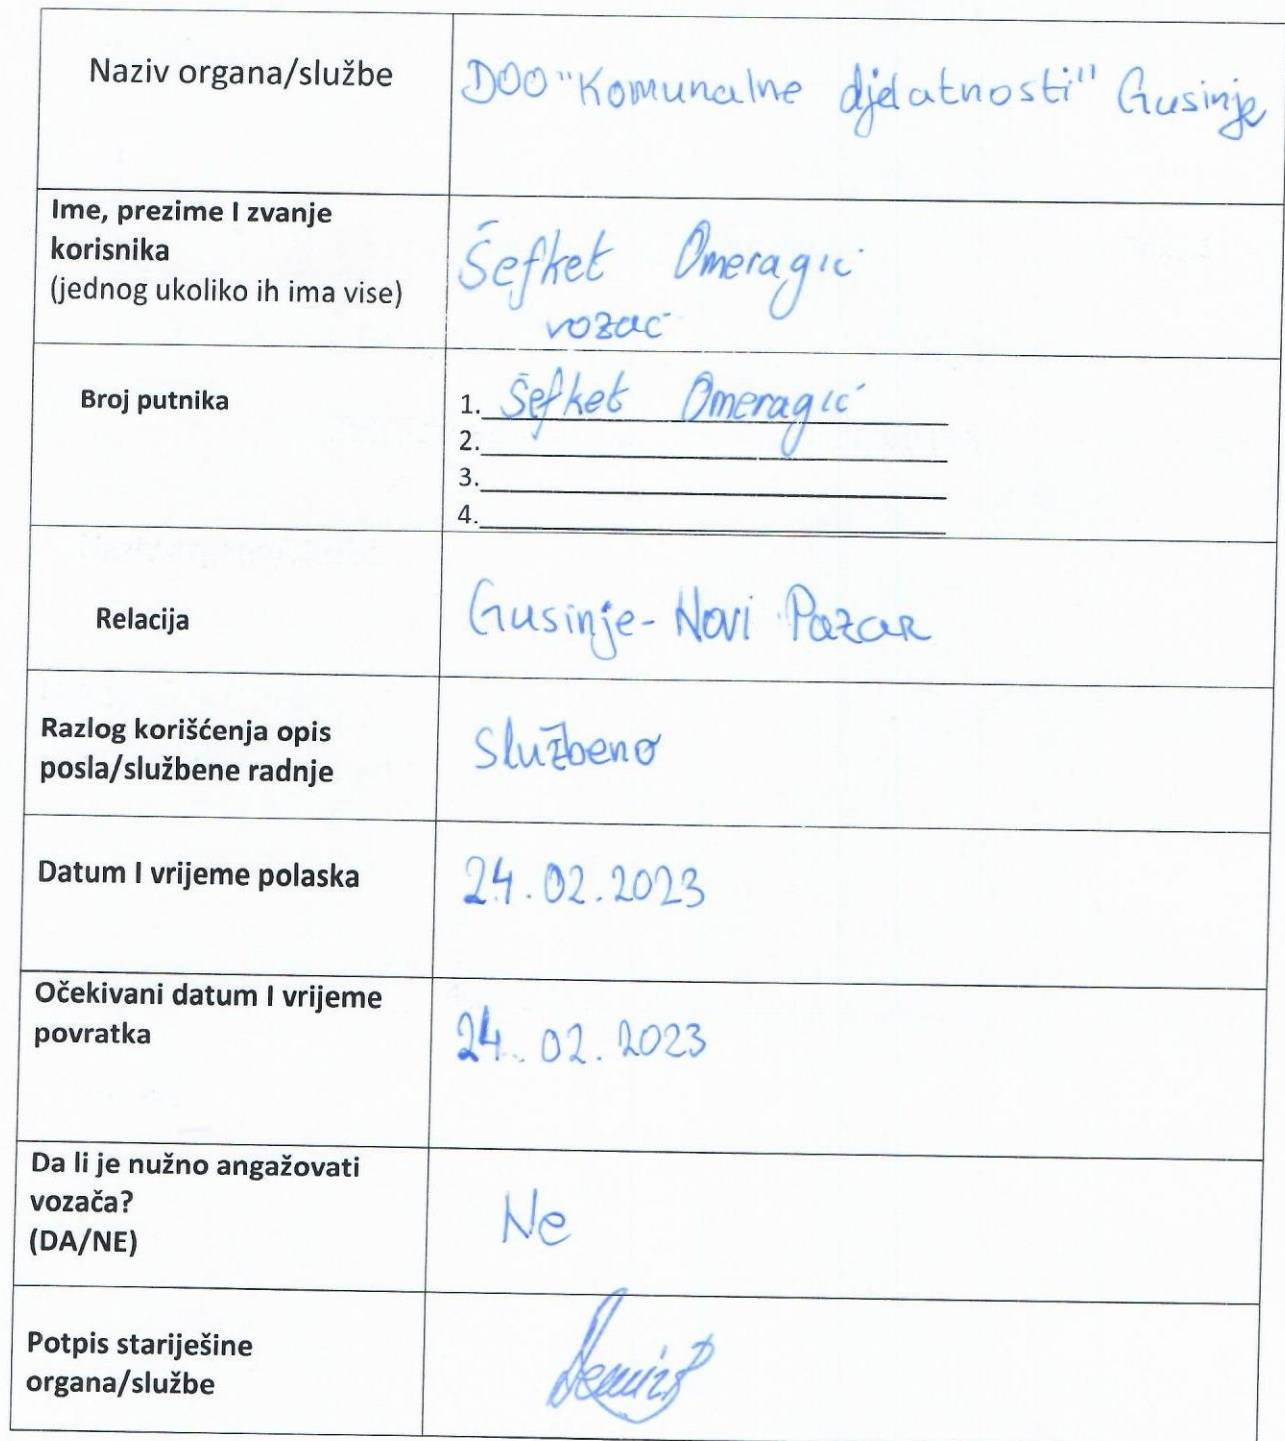 Naziv organa/službe
DOO "Komunalne djelatnosti" Gusinje
Ime, prezime I zvanje
korisnika
(jednog ukoliko ih ima vise)
Šefket Omeragić
vozač
Broj putnika
1. Šefket Omeragić
2.
3.
4.
Relacija
Gusinje - Novi Pazar
Razlog korišćenja opis
posla/službene radnje
Službeno
Datum I vrijeme polaska
24.02.2023
Očekivani datum I vrijeme
povratka
24.02.2023
Da li je nužno angažovati
vozača?
(DA/NE)
Ne
Potpis stariješine
organa/službe